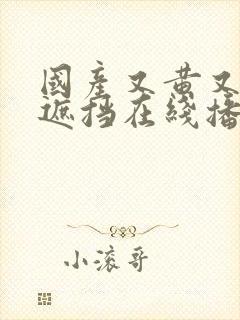 國產又黃又
遮挡在綫播
小滚哥